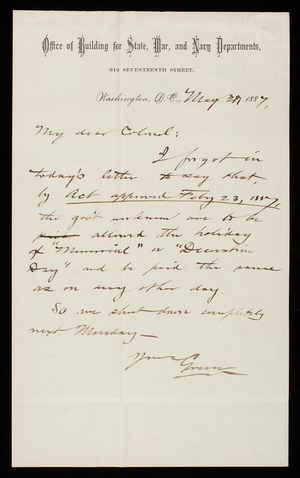 Office of Building for State, War, and Navy Departments,
613 SEVENTEENTH STREET,
Washington, D.C., May 1887,
My dear Colonel:
I forgot in
today's letter to say that,
by Act approved Feby 23, 1887,
the gov't workmen are to be
paid allowed the holiday
of "Memorial" or "Decoration
Day" and be paid the same
as on any other day.
So we shut down completely
next Monday—
Yours
Green